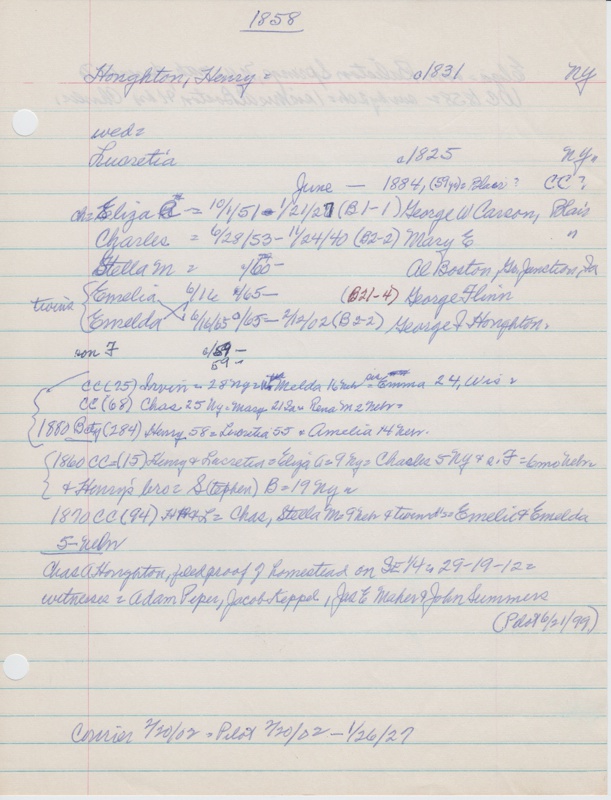 1858
Houghton, Henry = c1831 NY
wed =
Lucretia c1825 NY =
June — 1884, (59y) = Blair? CC?
ch = Eliza C = 10/1/51 - 1/21/27 (B1-1) George W Carson, Blair
Charles = 6/28/53 - 11/24/40 (B2-2) Mary E "
Stella M = c/60 - Al Boston, Gr. Junction, Ia
twins { Emelia 6/16 c/65 - (B21-4) George Flinn
Emelda 6/16/65 c/65 - 2/12/02 (B2-2) George I Houghton.
son F c/59 -
59 -
CC (75) Irvin = 28 Ny = Melda 16 nebr = Emma 24, Wis =
CC (68) Chas 25 Ny = Marge 21 Ia = Rena M 2 Nebr =
1880 (284) Henry 58 = Lucretia 55 & Amelia 14 Nebr.
1860 CC = (15) Henry & Lucretia = Eliza C = 9 Ny = Charles 5 Ny & c. F = 6 mo nebr
& Henry's bro = S(tephen) B = 19 Ny =
1870 CC (94) H & L = Chas, Stella M 9 Nebr & twin = Emelie & Emelda
5 - nebr
Chas A Houghton, filed proof of homestead on SE 1/4 29-19-12 =
witnesses = Adam Peper, Jacob Koppel, Jas E Maher & John Summers
(Pilot 6/21/99)
Courier 2/20/02 = Pilot 2/20/02 - 1/26/27